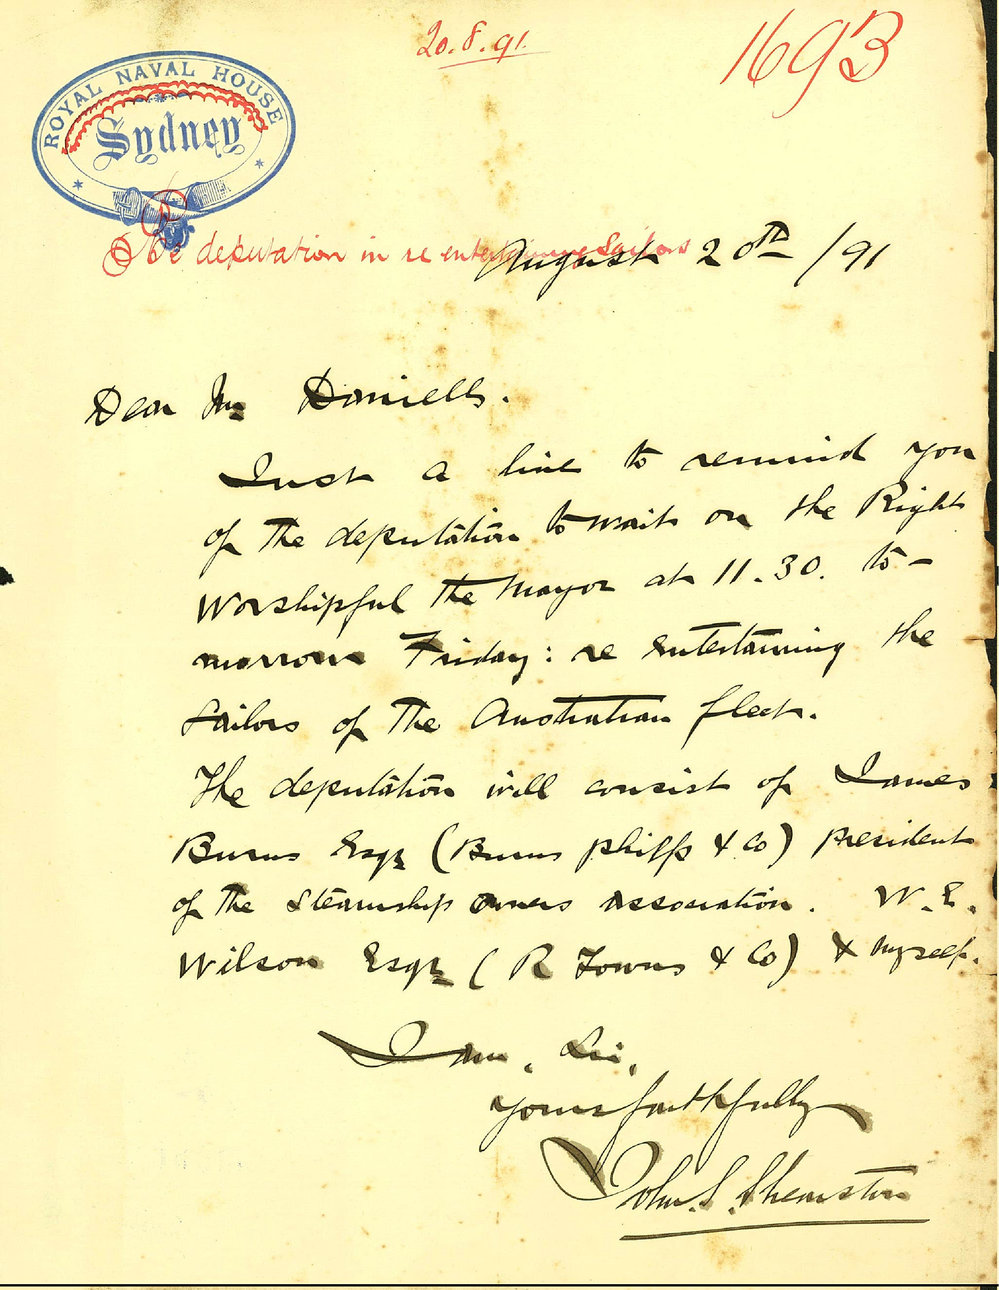 20.8.91.
1693
ROYAL NAVAL HOUSE
Sydney
deputation in re entertaining Sailors
August 20th /91
Dear Mr Daniells.
Just a line to remind you
of the deputation to wait on the Right
Worshipful the Mayor at 11.30. to-
morrow Friday: re entertaining the
Sailors of the Australian fleet.
The deputation will consist of James
Burns Esqr (Burns Philp & Co) president
of the Steamship owners association. W. E.
Wilson Esqr (R Towns & Co) & myself.
I am, Sir,
yours faithfully
John S. Shearston